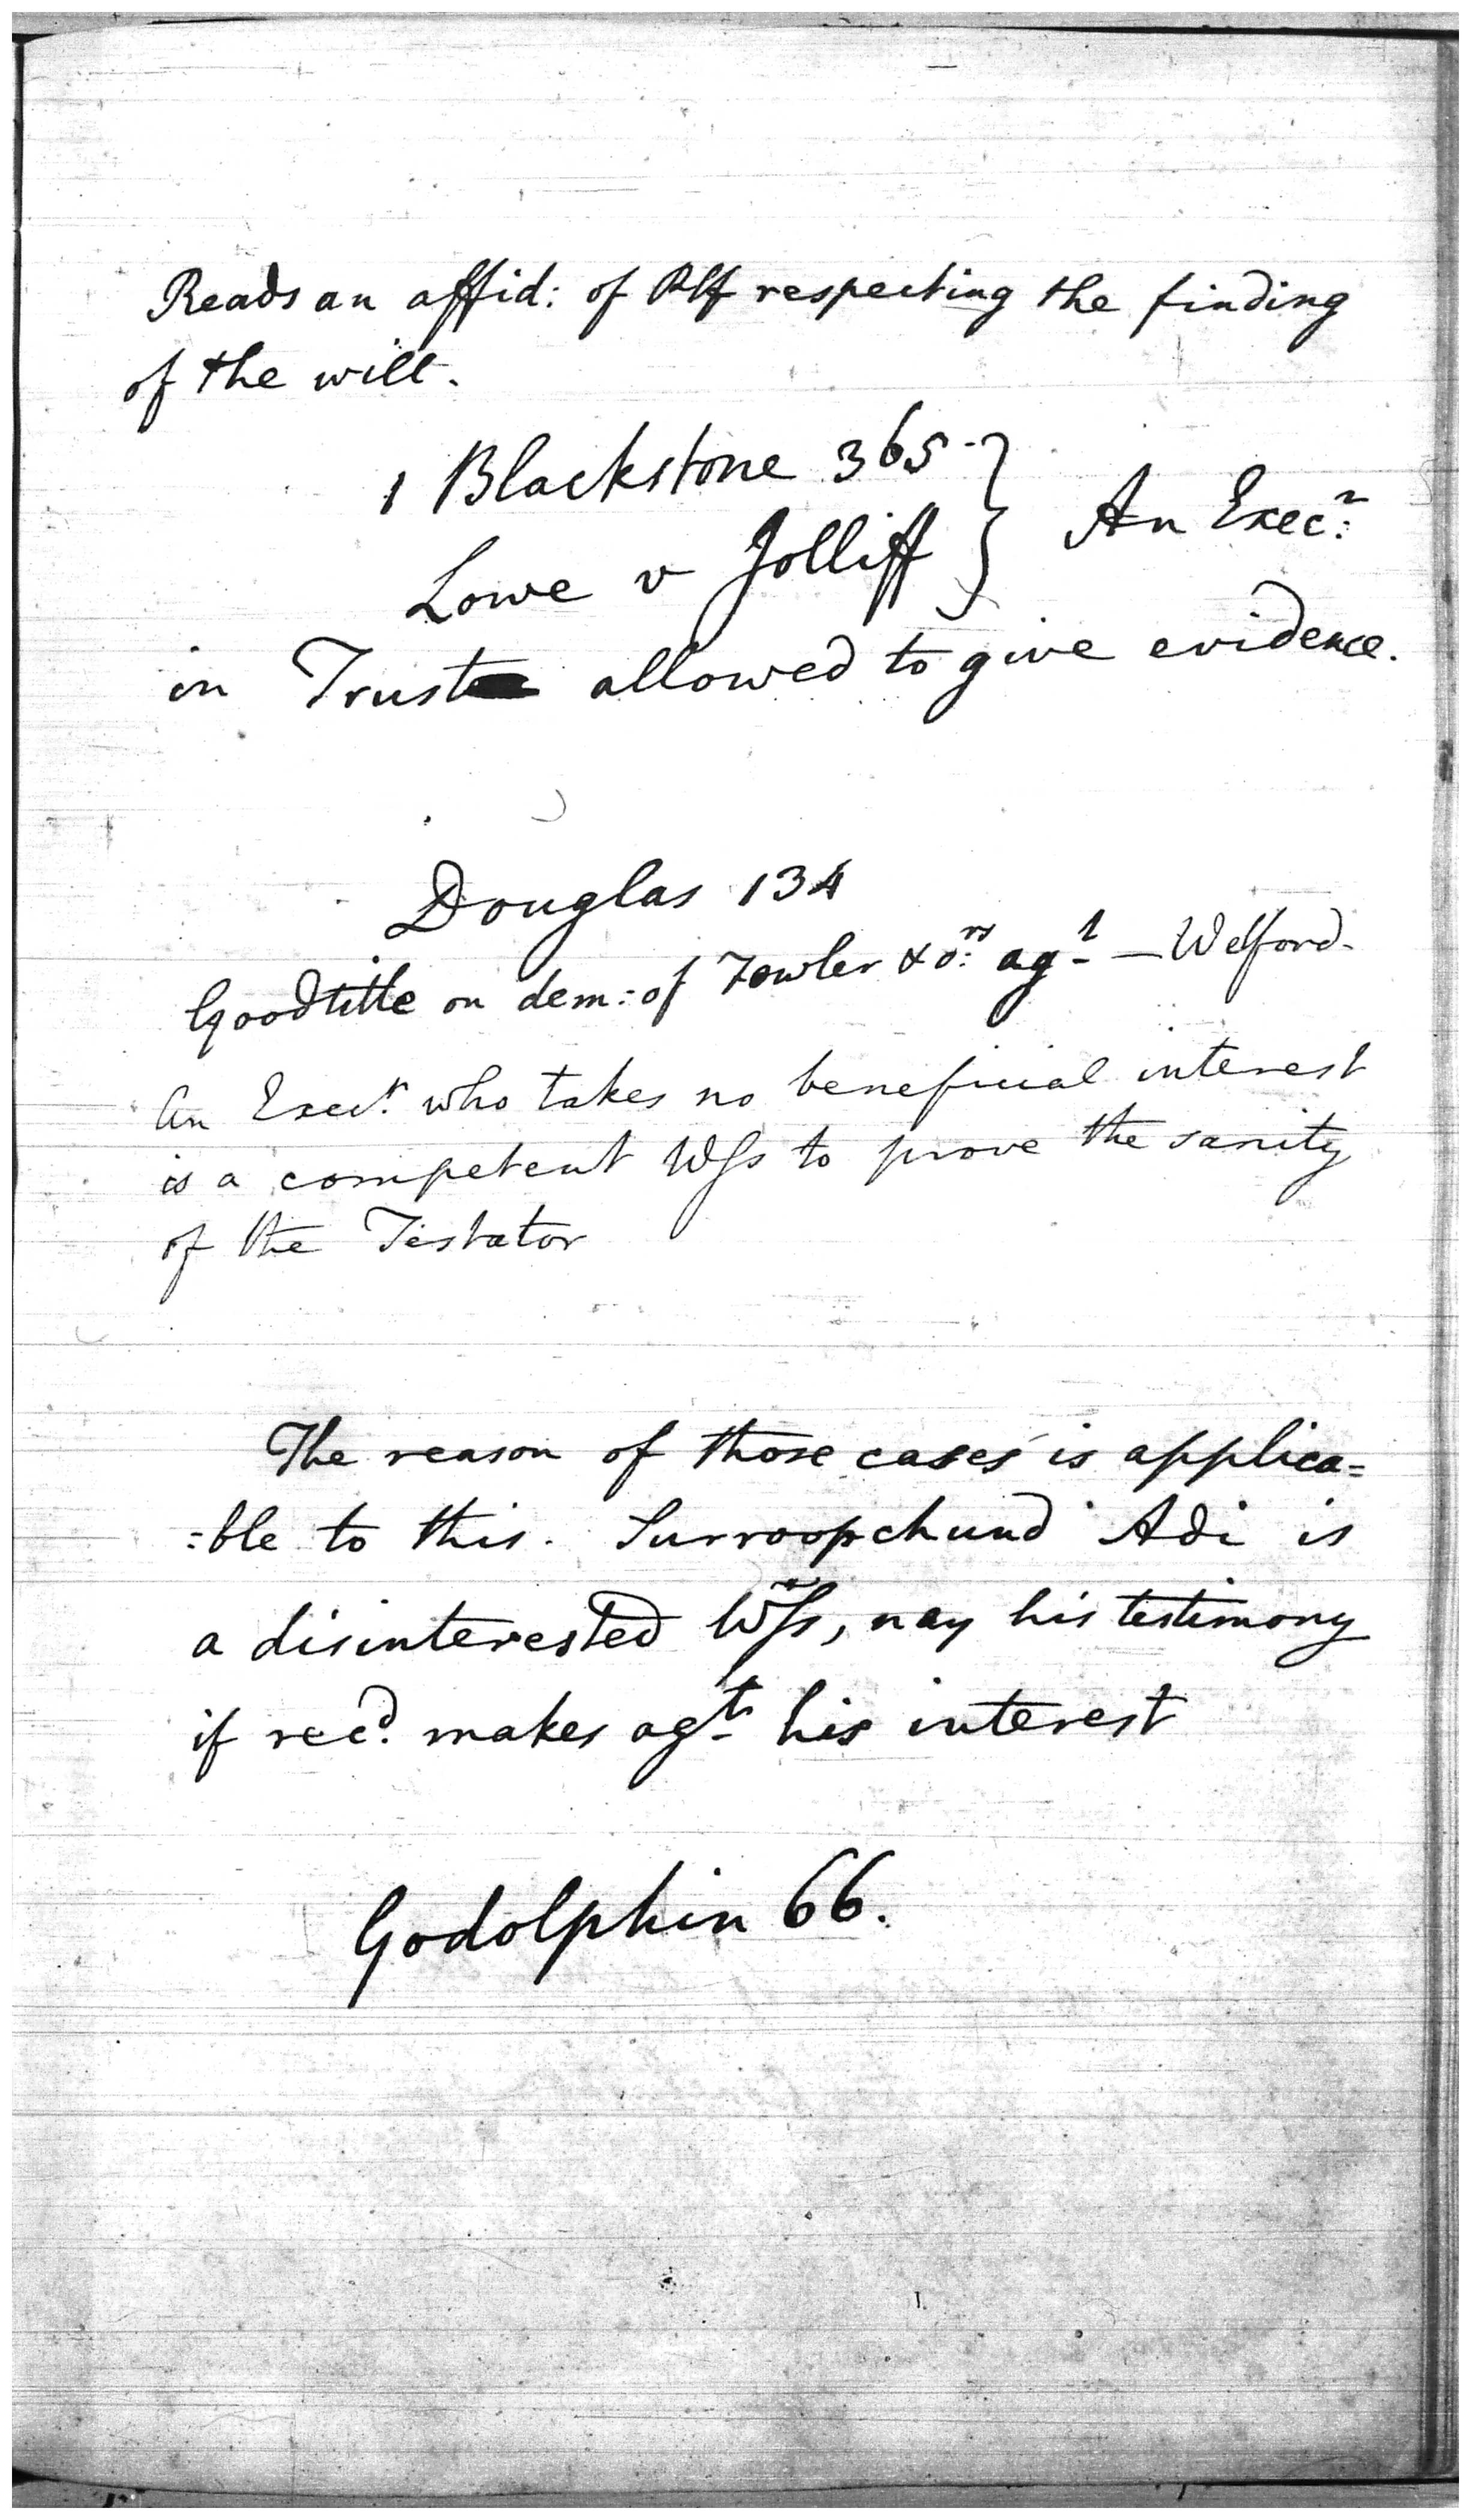 Reads an affid: of Plf respecting the finding
of the will.
1 Blackstone 365 - } An Execr:
Lowe v Jolliff
in Trust allowed to give evidence.
Douglas 134
Goodtitle on dem: of Fowler & ors: agt - Welford.
An Execr. who takes no beneficial interest
is a competent Wss to prove the sanity
of the Testator
The reason of those cases is applica=
=ble to this. Surroopchund Adi is
a disinterested Wss, nay his testimony
if recd. makes agt. his interest
Godolphin 66.